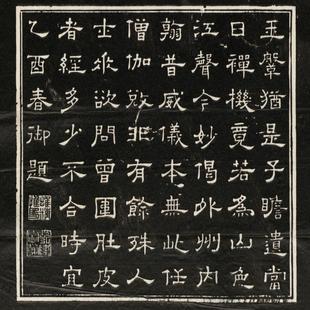 玉鞶猶是子瞻遺當
日禪機竟若為山色
江聲今妙偈外州内
翰昔威儀本無此任
僧伽非有餘殊人
士欲問曾圍肚皮
者經多少不合時宜
乙酉春御題